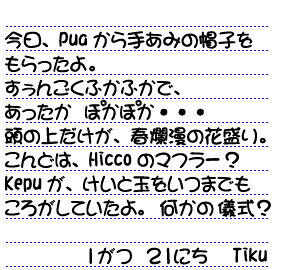 今日、Puaから手あみの帽子を
もらったよ。
すぅんごくふかふかで、
あったか　ぽかぽか・・・
頭の上だけが、春爛漫の花盛り。
こんどは、Hiccoのマフラー？
Kepuが、けいと玉をいつまでも
ころがしていたよ。何かの儀式？
1がつ　21にち　Tiku